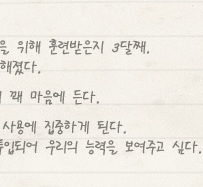 을 위해 훈련받은지 3달째.
해졌다.
꽤 마음에 든다.
사용에 집중하게 된다.
투입되어 우리의 능력을 보여주고 싶다.